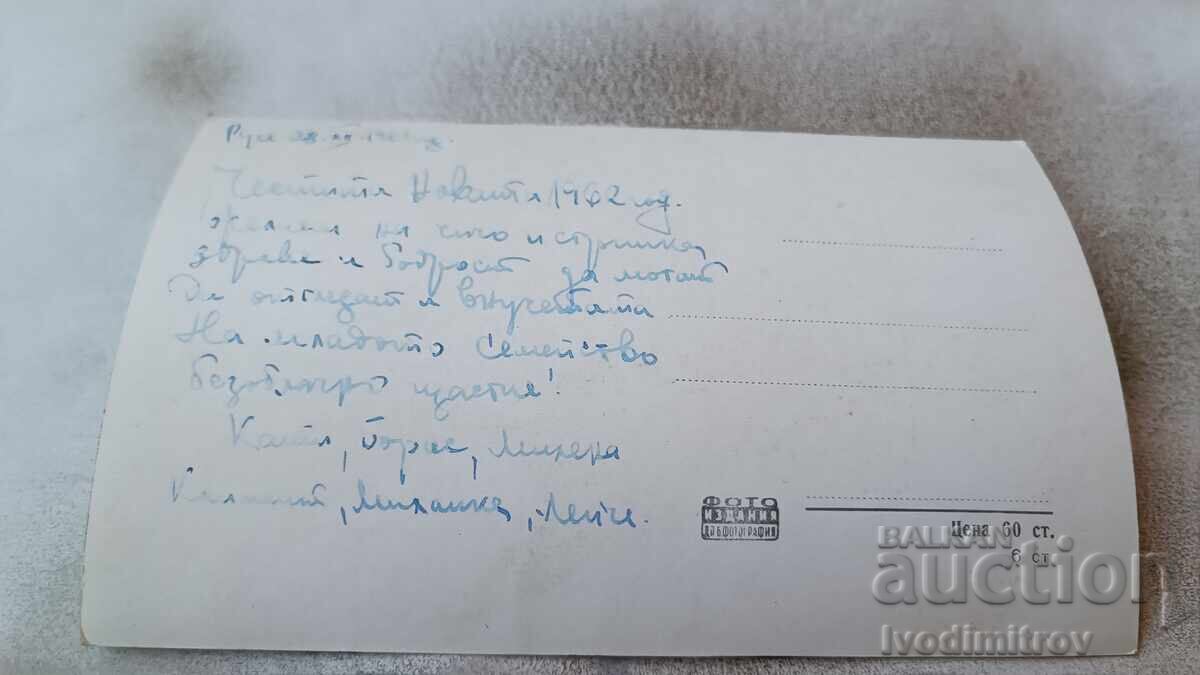 Русе
Честита Новата 1962 год.
желая на чичо и стринка
здраве и бодрост да могат
Да отгледат и внучетата
На младото семейство
безоблачно щастие!
Катя, Борис, Минера
Климент, Михалка, Ленче.
ФОТО
ИЗДАНИЯ
ДП БФОТОГРАФИЯ
Цена 60 ст.
6 ст.
BALKAN
auction
Ivodimitrov